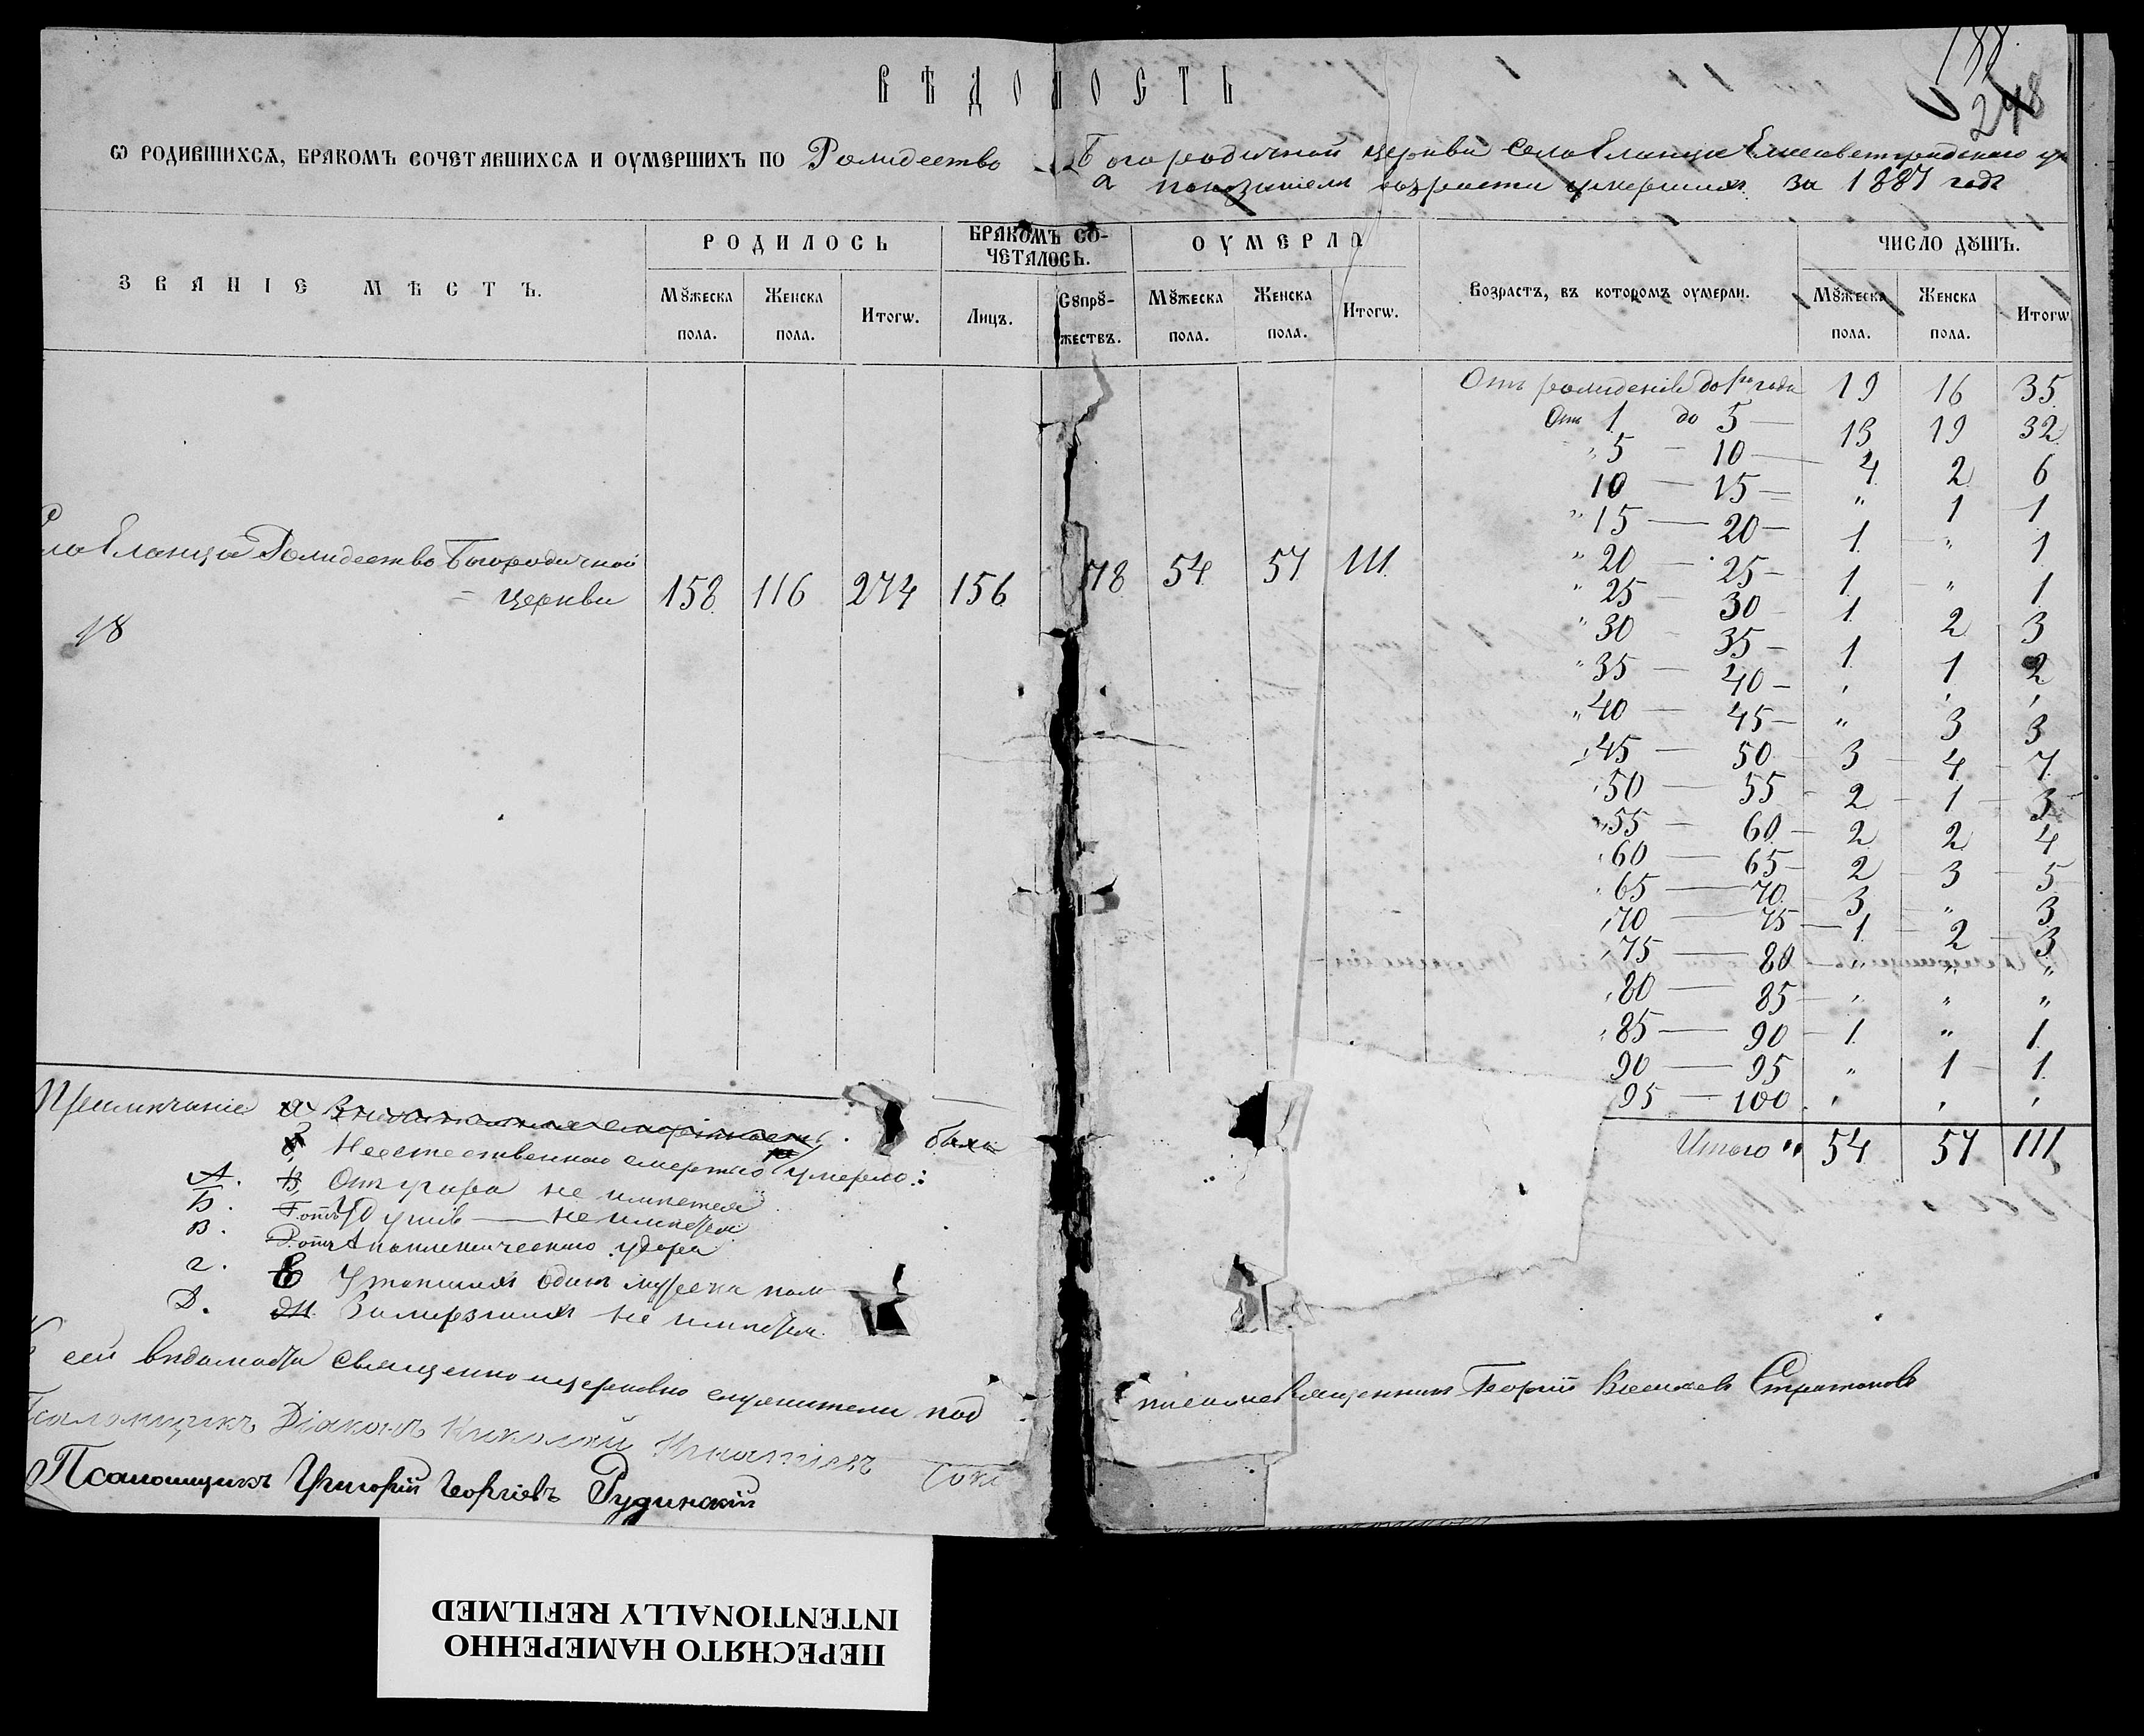 188.
248
ВѢДОМОСТЬ
Ѡ РОДИВШИХСѦ, БРАКОМЪ СОЧЕТАВШИХСѦ И ОУМЕРШИХЪ ПО Рождество Богородичной церкви села Еланца Елисаветградскаго у
а показаніемъ возраста умершихъ за 1887 годъ
ЗВАНІЕ МѢСТЪ.
РОДИЛОСЬ
БРАКОМЪ СОЧЕТАЛОСЬ.
ОУМЕРЛО
Возрастъ, въ которомъ оумерли.
ЧИСЛО ДꙋШЪ.
Мꙋжеска пола.
Женска пола.
Итогѡ.
Лицъ.
Сꙋпрꙋ-жествъ.
Мꙋжеска пола.
Женска пола.
Итогѡ.
Мꙋжеска пола.
Женска пола.
Итогѡ
Отъ рожденія до 1го года 19 16 35
Отъ 1 до 5 — 13 19 32
" 5 — 10 — 4 2 6
10 — 15 — " 1 1
" 15 — 20 — 1 " 1
" 20 — 25 — 1 " 1
" 25 — 30 1 2 3
" 30 — 35 — 1 1 2
" 35 — 40 — " " "
" 40 — 45 — " 3 3
" 45 — 50 3 4 7
" 50 — 55 2 1 3
" 55 — 60 — 2 2 4
" 60 — 65 — 2 3 5
" 65 — 70 3 " 3
" 70 — 75 — 1 2 3
" 75 — 80 — " " "
" 80 — 85 — " " "
" 85 — 90 — 1 " 1
90 — 95 " 1 1
95 — 100 " " "
Итого " 54 57 111
ла Еланца Рождество Богородичной
церкви 158 116 274 156 78 54 57 111
18
Примѣчаніе
Неестественною смертію умерло:
А. В, Отъ угара не имѣется
Б. Г. отъ удушія — не имѣется
В. Д. отъ Апоплексическаго удара
г. Е Утопшихъ одинъ мужеска пола
Д. Замерзшихъ не имѣется.
сей вѣдомости священно церковно служители под писался Священникъ Георгій Васильевъ Стратоновъ
Псаломщикъ Діаконъ Николай Игнатіевъ Соко
Псаломщикъ Григорій Георгіевъ Рудинскій
ПЕРЕСНЯТО НАМЕРЕННО
INTENTIONALLY REFILMED